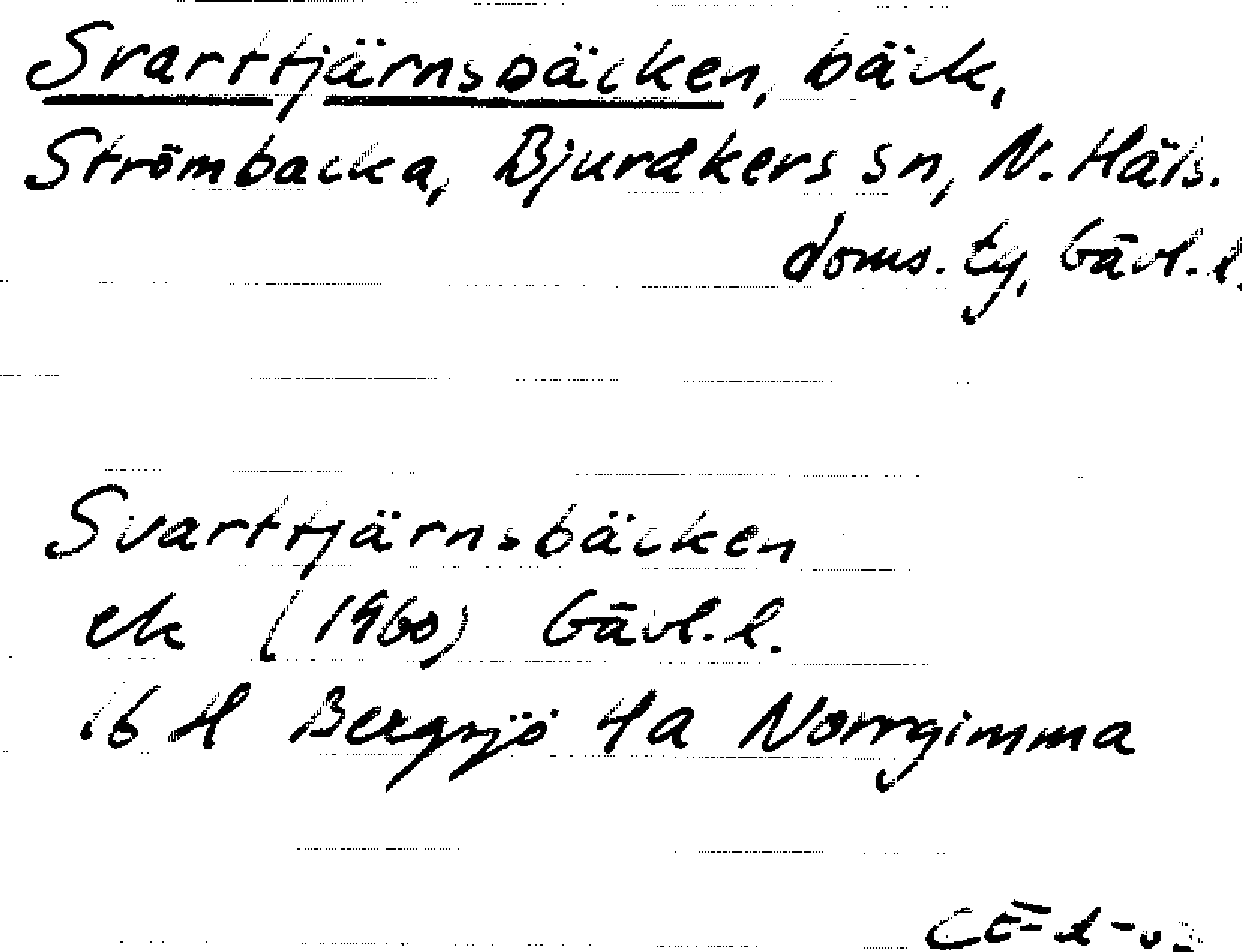 Svarttjärnsbäcken, bäck,
Strömbacka, Bjuråkers sn, N. Häls.
doms. tg, Gävl. l.
Svarttjärnsbäcken
ek (1960) Gävl. l.
16 H Bergsjö 4a Norrgimma